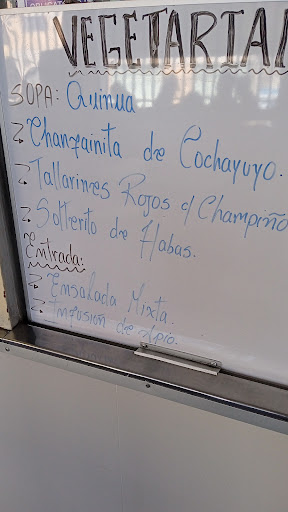 VEGETARIA
SOPA: Quinua
Chanfainita de Cochayuyo.
Tallarines Rojos c/ Champiño
Solterito de Habas.
Entrada:
Ensalada Mixta.
Infusion de Apio.